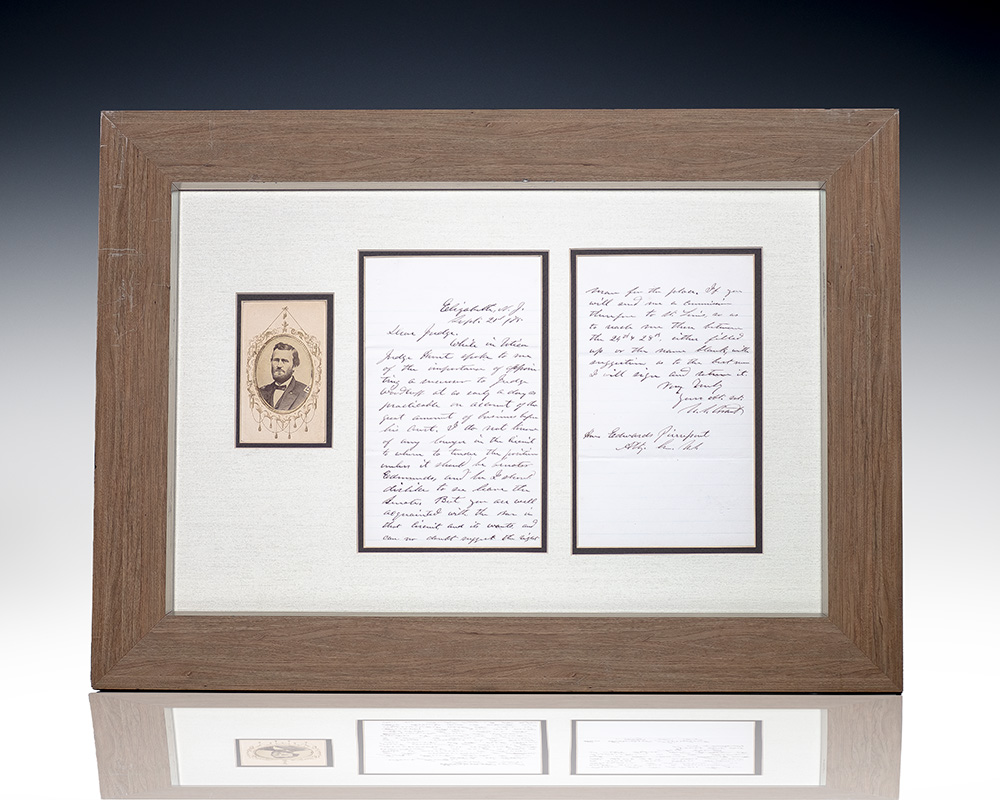 Elizabeth, N.J.
Sept. 21st /75
Dear Judge.
While in Utica
Judge Hunt spoke to me
of the importance of appoin
ting a successor to Judge
Woodruff at as early a day as
practicable on account of the
great amount of business before
his court. I do not know
of any lawyer in the Circuit
to whom to tender the position
unless it should be Senator
Edmunds, and him I should
dislike to see leave the
Senate. But you are well
acquainted with the men in
that Circuit and its wants and
can no doubt suggest the right
man for the place. If you
will send me a commission
therefor to St. Louis so as
to reach me there between
the 25th & 28th either filled
up or the name blank, with
suggestion as to the best man
I will sign and return it.
Very Truly
Your obt. svt.
U. S. Grant
Hon. Edwards Pierrepont
Atty. Gn. U.S.